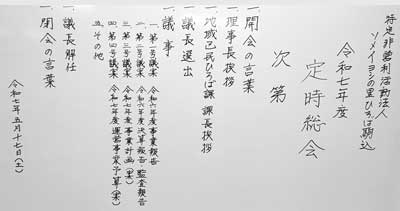 特定非営利活動法人
ソメイヨシの里ひろば駒込
令和七年度
定時総会
次第
一、開会の言葉
一、理事長挨拶
一、地域区民ひろば課 課長挨拶
一、議長選出
一、議事
一、第一号議案 令和六年度事業報告
二、第二号議案 令和六年度決算報告・監査報告
三、第三号議案 令和七年度事業計画(案)
四、第四号議案 令和七年度運営事業予算(案)
五、その他
一、議長解任
一、閉会の言葉
令和七年五月十七日(土)